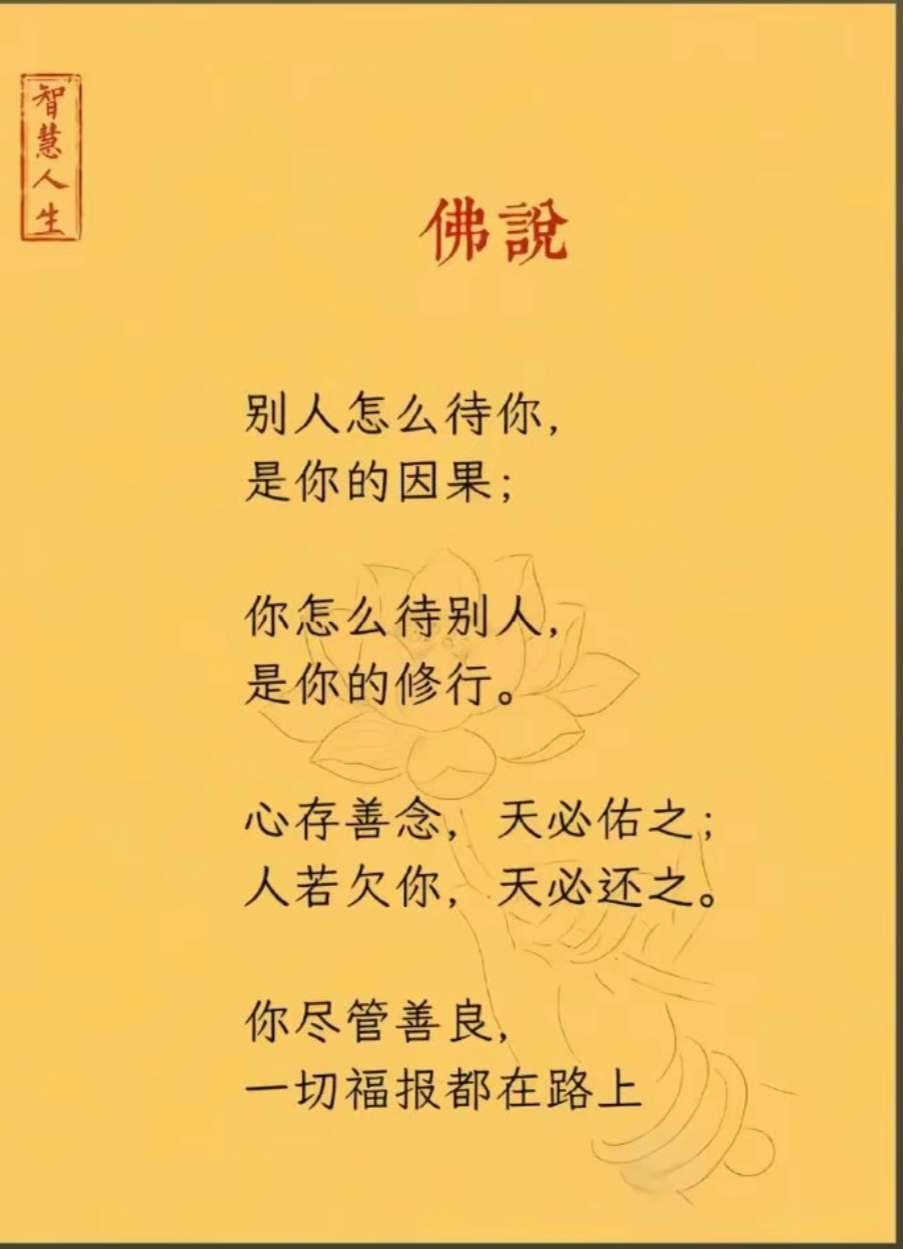 智慧人生
佛說
别人怎么待你,
是你的因果;
你怎么待别人,
是你的修行。
心存善念, 天必佑之;
人若欠你, 天必还之。
你尽管善良,
一切福报都在路上